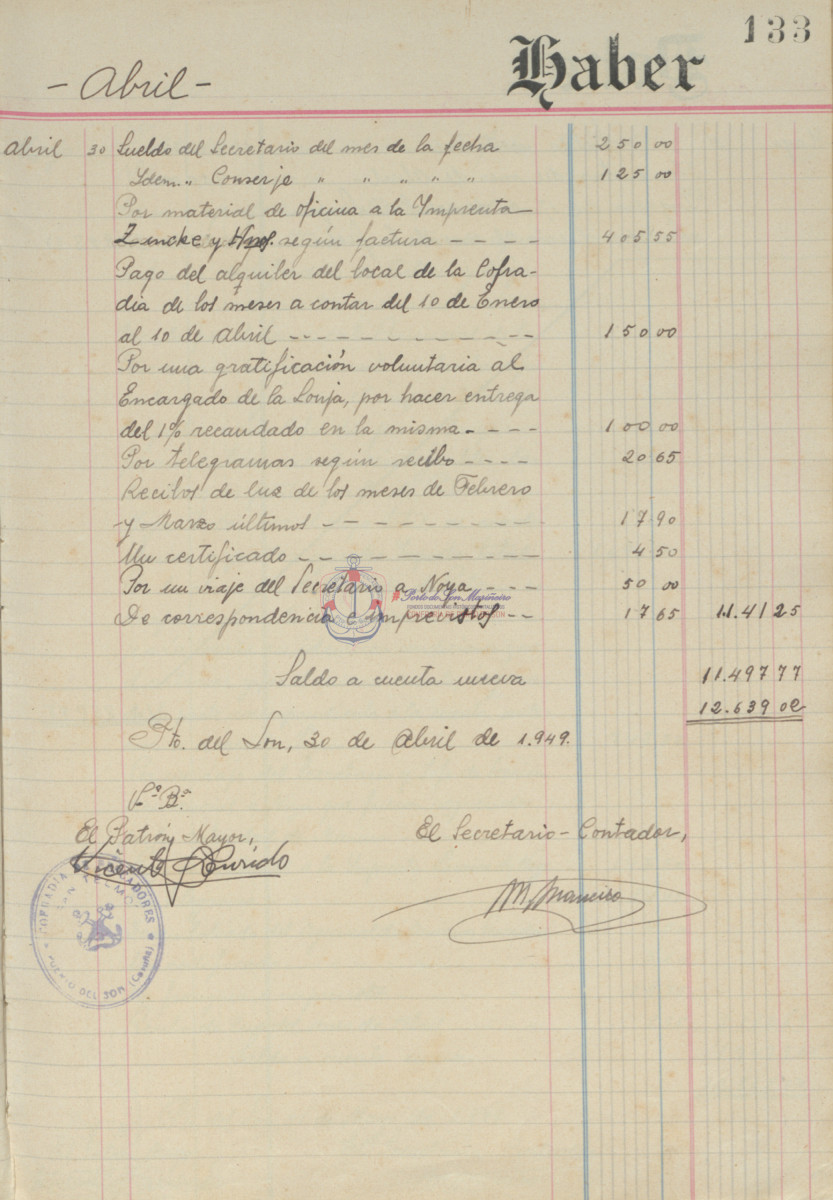 133
- Abril -
Haber
Abril 30 Sueldo del Secretario del mes de la fecha 250 00
Idem „ Conserje „ „ „ „ „ 125 00
Por material de oficina a la Imprenta
Zincke y Hnos. según factura - - - - 405 55
Pago del alquiler del local de la Cofra-
dia de los meses a contar del 10 de Enero
al 10 de Abril - - - - - - - - - - 150 00
Por una gratificación voluntaria al
Encargado de la Lonja, por hacer entrega
del 1% recaudado en la misma - - - - 100 00
Por telegramas según recibo - - - - 20 65
Recibos de luz de los meses de Febrero
y Marzo últimos - - - - - - - - - 17 90
Un certificado - - - - - - - - - 4 50
Por un viaje del Secretario a Noya - - - 50 00
De correspondencia e imprevistos - - 17 65 1.141 25
Porto do Son Mariñeiro
Saldo a cuenta nueva 11.497 77
12.639 02
Pto. del Son, 30 de Abril de 1.949.
Vº Bº
El Patrón Mayor,
El Secretario-Contador,
Vicente
COFRADIA PESCADORES
SAN TELMO
PUERTO DEL SON (Coruña)